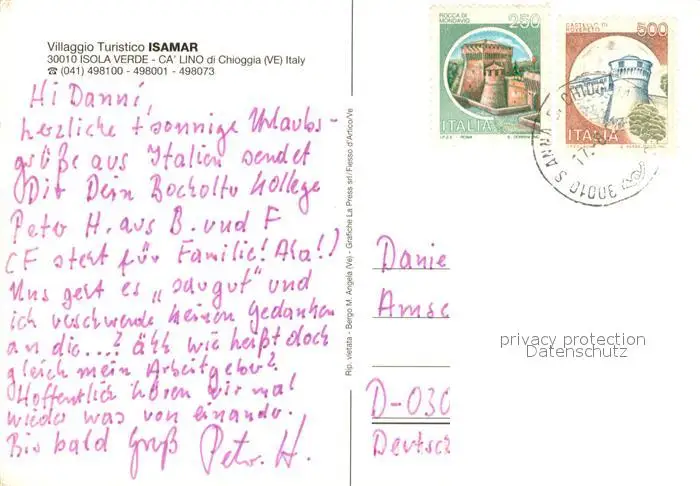 Villaggio Turistico ISAMAR
30010 ISOLA VERDE - CA' LINO di Chioggia (VE) Italy
☎ (041) 498100 - 498001 - 498073
Hi Danni,
herzliche + sonnige Urlaubs-
grüße aus Italien sendet
Dir Dein Bocholter Kollege
Peter H. aus B. und F
(F steht für Familie! Aha!)
Uns geht es „saugut" und
ich verschwende keinen Gedanken
an die...? ähh wie heißt doch
gleich mein Arbeitgeber?
Hoffentlich hören wir mal
wieder was von einander.
Bis bald Gruß Peter H.
Rip. vietata - Bergo M. Angela (Ve) - Grafiche La Press srl / Fiesso d'Artico/Ve
ROCCA DI
MONDAVIO
250
ITALIA
I.P.Z.S. ROMA
CASTELLO DI
ROVERETO
500
ITALIA
30010 S. ANNA DI CHIOGGIA
Danie
Amse
privacy protection
Datenschutz
D-030
Deutsc